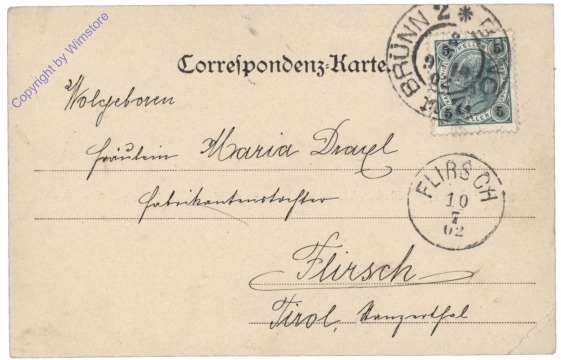 Copyright by Wimstore
BRÜNN 2 *
5 5
5 5
Correspondenz-Karte
Wolgeboren
Fräulein Maria Draxl
Fabrikantenstochter
FLIRSCH
10
7
02
Flirsch
Tirol, Stanzerthal